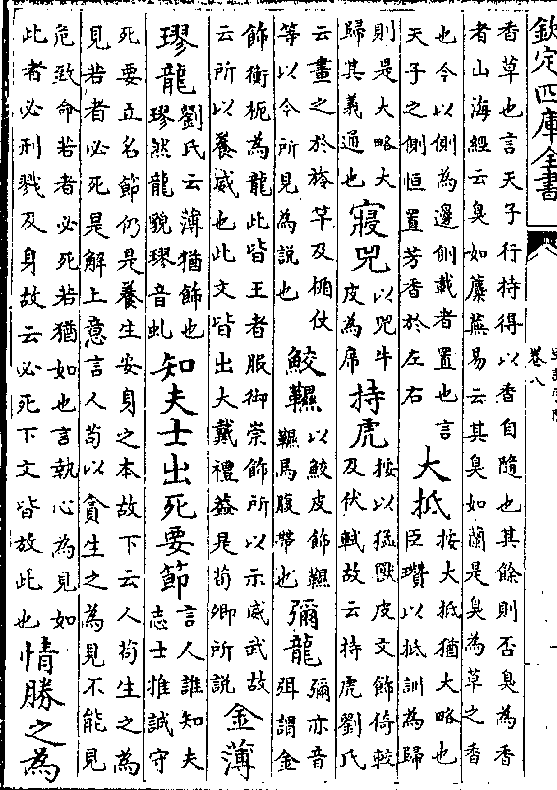 欽定四庫全書
卷八
香草也言天子行持得以香自隨也其餘則否臭為香
者山海經云臭如蘪蕪易云其臭如蘭是臭為草之香
也今以側為邊側載者置也言
天子之側恒置芳香於左右
大抵
按大抵猶大略也
臣瓚以抵訓為歸
則是大略大
歸其義通也
寢兕
以兕牛
皮為席
持虎
按以猛獸皮文飾倚較
及伏軾故云持虎劉氏
云畫之於旂竿及楯仗
等以今所見為說也
鮫韅
以鮫皮飾韅
韅馬腹帶也
彌龍
彌亦音
弭謂金
飾衡枙為龍此皆王者服御崇飾所以示威武故
云所以養威也此文皆出大戴禮蓋是荀卿所説
金薄
璆龍
劉氏云薄猶飾也
璆然龍貌璆音虬
知夫士出死要節
言人誰知夫
志士推誠守
死要立名節仍是養生安身之本故下云人苟生之為
見若者必死是解上意言人苟以貪生之為見不能見
危致命若者必死若猶如也言執心為見如
此者必刑戮及身故云必死下文皆放此也
情勝之為